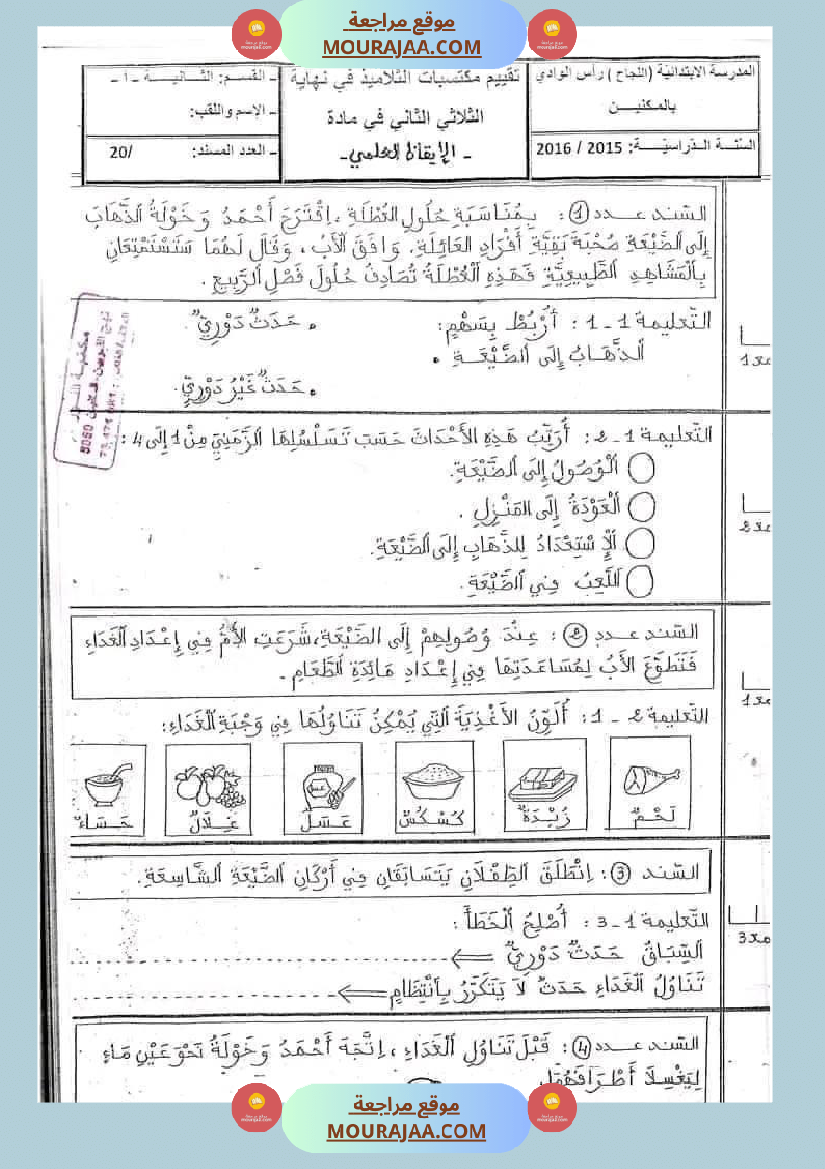 موقع مراجعة
MOURAJAA.COM
المدرسة الابتدائية (النجاح) رأس الوادي
بالمكنين
السنة الدراسية: 2015 / 2016
تقييم مكتسبات التلاميذ في نهاية
الثلاثي الثاني في مادة
- الإيقاظ العلمي -
- القسم: الثانية - أ -
- الإسم واللقب:
- العدد المسند: /20
السّند عدد 1: بِمُنَاسَبَةِ حُلُولِ العُطْلَةِ، اِقْتَرَحَ أَحْمَدُ وَخَوْلَةُ الذَّهَابَ
إِلَى الضَّيْعَةِ صُحْبَةَ بَقِيَّةِ أَفْرَادِ العَائِلَةِ. وَافَقَ الأَبُ، وَقَالَ لَهُمَا سَتَسْتَمْتِعَانِ
بِالْمَشَاهِدِ الطَّبِيعِيَّةِ فَهَذِهِ العُطْلَةُ تُصَادِفُ حُلُولَ فَصْلِ الرَّبِيعِ.
التّعليمة 1-1: أَرْبُطُ بِسَهْمٍ:
• حَدَثٌ دَوْرِيٌّ.
الذَّهَابُ إِلَى الضَّيْعَةِ •
• حَدَثٌ غَيْرُ دَوْرِيٍّ.
مع1
التّعليمة 1-2: أُرَتِّبُ هَذِهِ الأَحْدَاثَ حَسَبَ تَسَلْسُلِهَا الزَّمَنِيِّ مِنْ 1 إِلَى 4:
الْوُصُولُ إِلَى الضَّيْعَةِ.
الْعَوْدَةُ إِلَى المَنْزِلِ.
الاِسْتِعْدَادُ لِلذَّهَابِ إِلَى الضَّيْعَةِ.
اللَّعِبُ فِي الضَّيْعَةِ.
مع2
السّند عدد 2: عِنْدَ وُصُولِهِمْ إِلَى الضَّيْعَةِ، شَرَعَتِ الأُمُّ فِي إِعْدَادِ الْغَدَاءِ
فَتَطَوَّعَ الأَبُ لِمُسَاعَدَتِهَا فِي إِعْدَادِ مَائِدَةِ الطَّعَامِ.
التّعليمة 2-1: أُلَوِّنُ الأَغْذِيَةَ الَّتِي يُمْكِنُ تَنَاوُلُهَا فِي وَجْبَةِ الْغَدَاءِ:
مع1
لَحْمٌ
زُبْدَةٌ
كُسْكُسٌ
عَسَلٌ
غِلَالٌ
حَسَاءٌ
السّند 3: اِنْطَلَقَ الطِّفْلَانِ يَتَسَابَقَانِ فِي أَرْكَانِ الضَّيْعَةِ الشَّاسِعَةِ.
التّعليمة 1-3: أُصْلِحُ الْخَطَأَ:
السِّبَاقُ حَدَثٌ دَوْرِيٌّ
تَنَاوُلُ الْغَدَاءِ حَدَثٌ لَا يَتَكَرَّرُ بِانْتِظَامٍ
مع3
السّند عدد 4: قَبْلَ تَنَاوُلِ الْغَدَاءِ، اِتَّجَهَ أَحْمَدُ وَخَوْلَةُ نَحْوَ عَيْنِ مَاءٍ
لِيَغْسِلَا أَطْرَافَهُمَا.
موقع مراجعة
MOURAJAA.COM